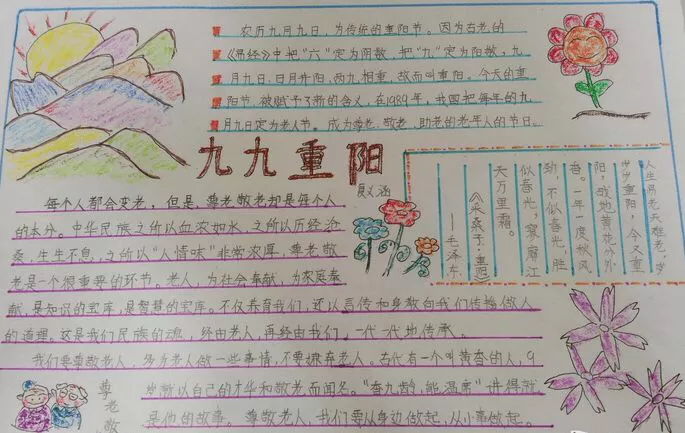 农历九月九日，为传统的重阳节。因为古老的
《易经》中把“六”定为阴数，把“九”定为阳数，九
月九日，日月并阳，两九相重，故而叫重阳。今天的重
阳节，被赋予了新的含义，在1989年，我国把每年的九
月九日定为老人节。成为尊老、敬老、助老的老年人的节日。
九九重阳
夏义涵
人生易老天难老，岁
岁重阳，今又重
阳，战地黄花分外
香。一年一度秋风
劲，不似春光，胜
似春光，寥廓江
天万里霜。
《采桑子·重阳》
——毛泽东
每个人都会变老，但是，尊老敬老却是每个人
的本分。中华民族之所以血浓如水，之所以历经沧
桑，生生不息，之所以“人情味”非常浓厚，尊老敬
老是一个很重要的环节。老人，为社会奉献，为家庭奉
献，是知识的宝库，是智慧的宝库。不仅养育我们，还以言传和身教向我们传播做人
的道理。这是我们民族的魂，经由老人，再经由我们，一代一代地传承。
我们要尊敬老人，多为老人做一些事情，不要嫌弃老人。古代有一个叫黄香的人，9
岁就以自己的才华和敬老而闻名。“香九龄，能温席”讲得就
是他的故事。尊敬老人，我们要从身边做起，从小事做起。
尊老敬